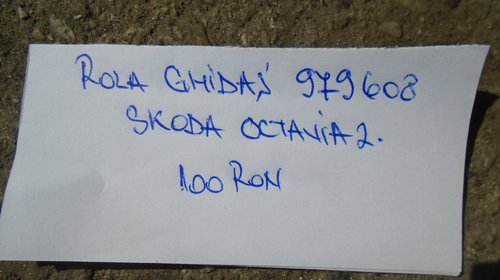 ROLA GHIDAJ 979608
SKODA OCTAVIA 2.
100 RON